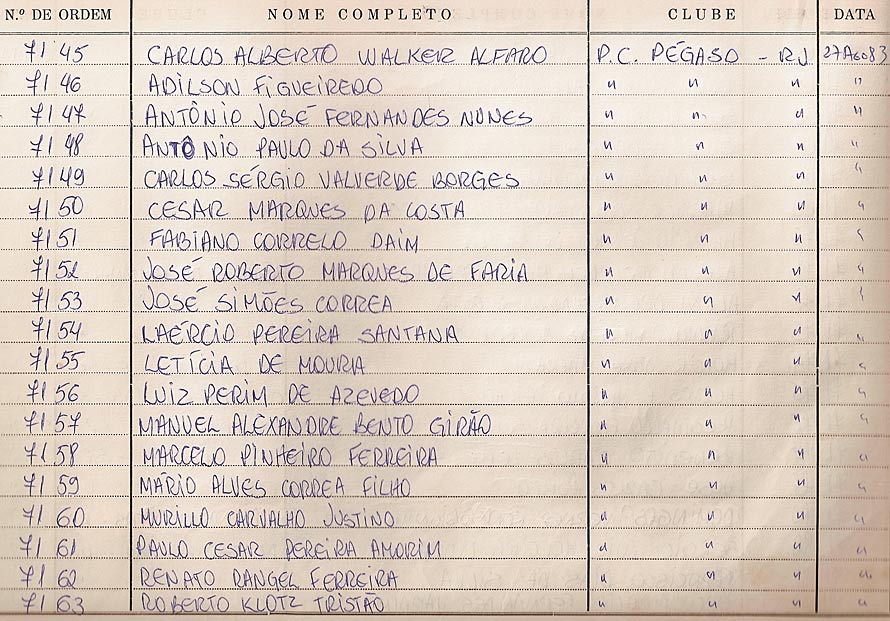 N.º DE ORDEM NOME COMPLETO CLUBE DATA
7145 CARLOS ALBERTO WALKER ALFARO P.C. PÉGASO - RJ 27AGO83
7146 ADILSON FIGUEIREDO " " " "
7147 ANTÔNIO JOSÉ FERNANDES NUNES " " " "
7148 ANTÔNIO PAULO DA SILVA " " " "
7149 CARLOS SÉRGIO VALVERDE BORGES " " " "
7150 CESAR MARQUES DA COSTA " " " "
7151 FABIANO CORRELO DAIM " " " "
7152 JOSÉ ROBERTO MARQUES DE FARIA " " " "
7153 JOSÉ SIMÕES CORREA " " " "
7154 LAÉRCIO PEREIRA SANTANA " " " "
7155 LETÍCIA DE MOURA " " " "
7156 LUIZ PERIM DE AZEVEDO " " " "
7157 MANUEL ALEXANDRE BENTO GIRÃO " " " "
7158 MARCELO PINHEIRO FERREIRA " " " "
7159 MÁRIO ALVES CORREA FILHO " " " "
7160 MURILLO CARVALHO JUSTINO " " " "
7161 PAULO CESAR PEREIRA AMORIM " " " "
7162 RENATO RANGEL FERREIRA " " " "
7163 ROBERTO KLOTZ TRISTÃO " " " "